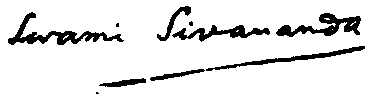 Swami Sivananda